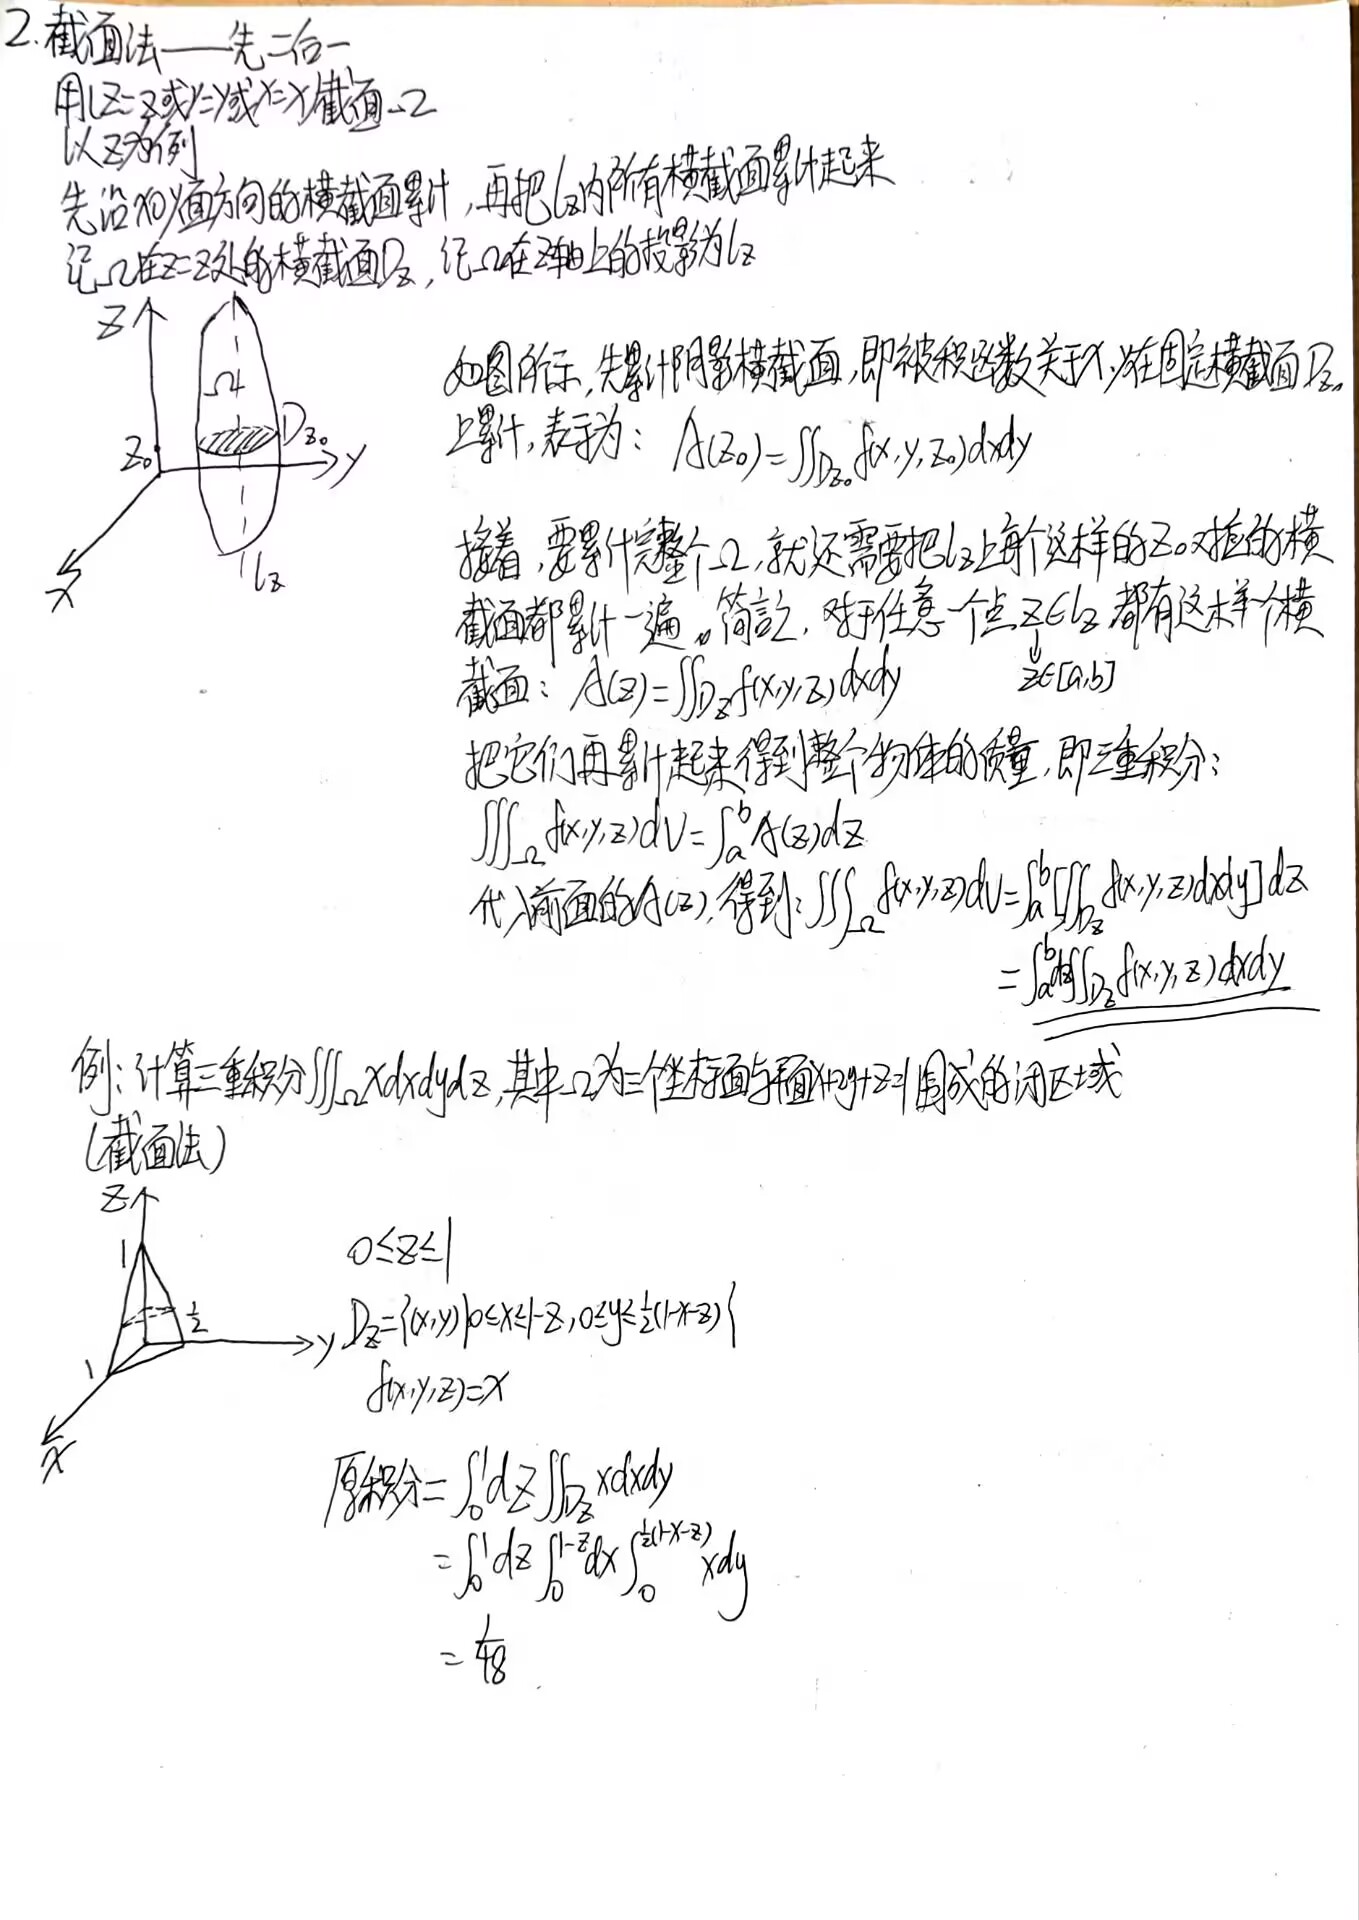 2.截面法——先二后一
用(Z=z或Y=y或X=x)截面Ω
以Z为例
先沿xoy面方向的横截面累计,再把lz内所有横截面累计起来
记Ω在z=z处的横截面Dz,记Ω在z轴上的投影为lz
z
Ω
Dz₀
z₀
y
x
lz
如图所示,先累计阴影横截面,即被积函数关于x,y在固定横截面Dz₀
上累计,表示为: A(z₀)=∬Dz₀ f(x,y,z₀)dxdy
接着,要累计完整个Ω,就还需要把lz上每个这样的z₀对应的横
截面都累计一遍。简言之,对于任意一个点z∈lz都有这样个横
↓
z∈[a,b]
截面: A(z)=∬Dz f(x,y,z)dxdy
把它们再累计起来得到整个物体的质量,即三重积分:
∭Ω f(x,y,z)dV=∫ₐᵇA(z)dz
代入前面的A(z),得到:∭Ω f(x,y,z)dV=∫ₐᵇ[∬Dz f(x,y,z)dxdy]dz
=∫ₐᵇdz∬Dz f(x,y,z)dxdy
例:计算三重积分∭Ω xdxdydz,其中Ω为三个坐标面与平面x+2y+z=1围成的闭区域
(截面法)
z
1
1/2
y
1
x
0≤z≤1
Dz={(x,y)|0≤x≤1-z,0≤y≤½(1-x-z)}
f(x,y,z)=x
原积分=∫₀¹dz∬Dz xdxdy
=∫₀¹dz∫₀^(1-z)dx∫₀^(½(1-x-z))xdy
=1/48